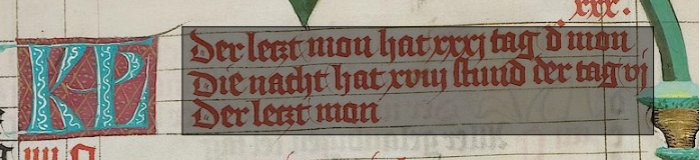 xxx.
KL
Der letzt mon hat xxxj tag d mon
Die nacht hat xviij stund der tag vj
Der letzt mon